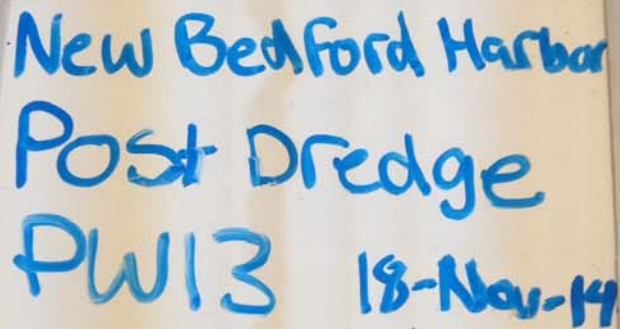 New Bedford Harbor
Post Dredge
PW13 18-Nov-14